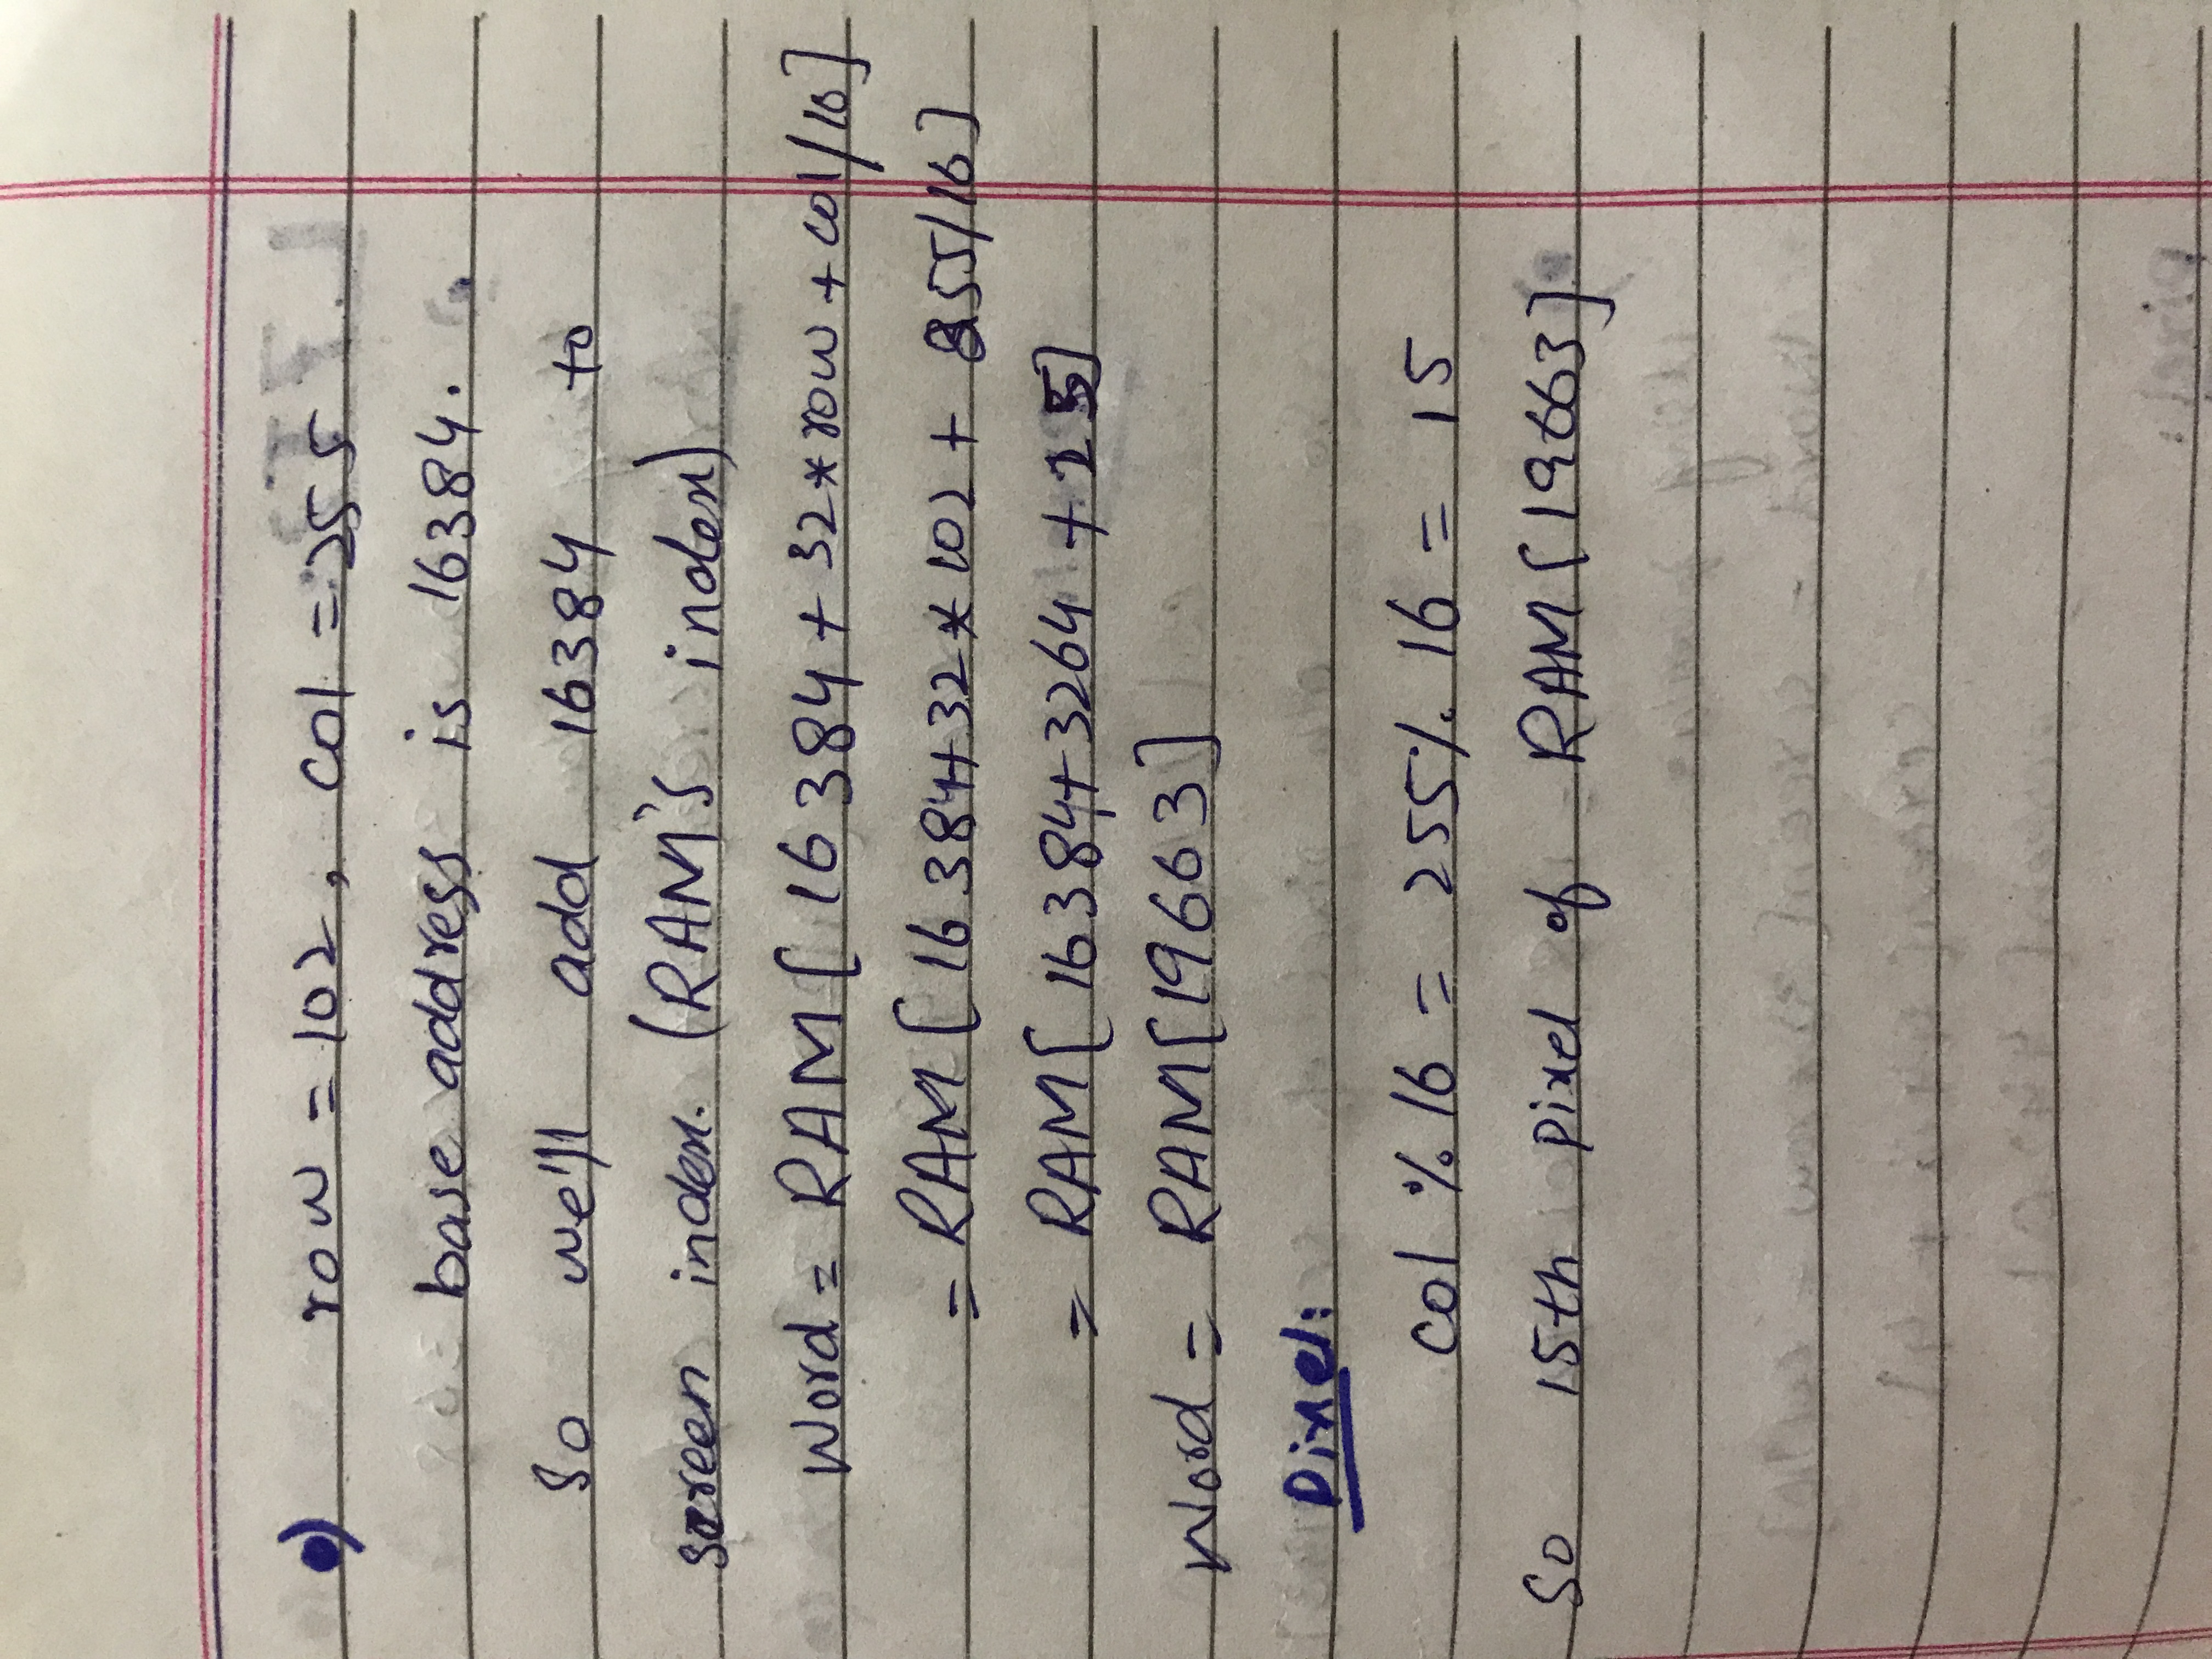 •) row = 102, col = 255
base address is 16384.
So we'll add 16384 to
screen index. (RAM's index)
Word = RAM[ 16384 + 32*row + col/16]
= RAM[ 16384+32*102 + 255/16]
= RAM[ 16384+3264 + 15]
Word = RAM[19663]
Pixel:
col % 16 = 255% 16 = 15
So 15th pixel of RAM[19663]